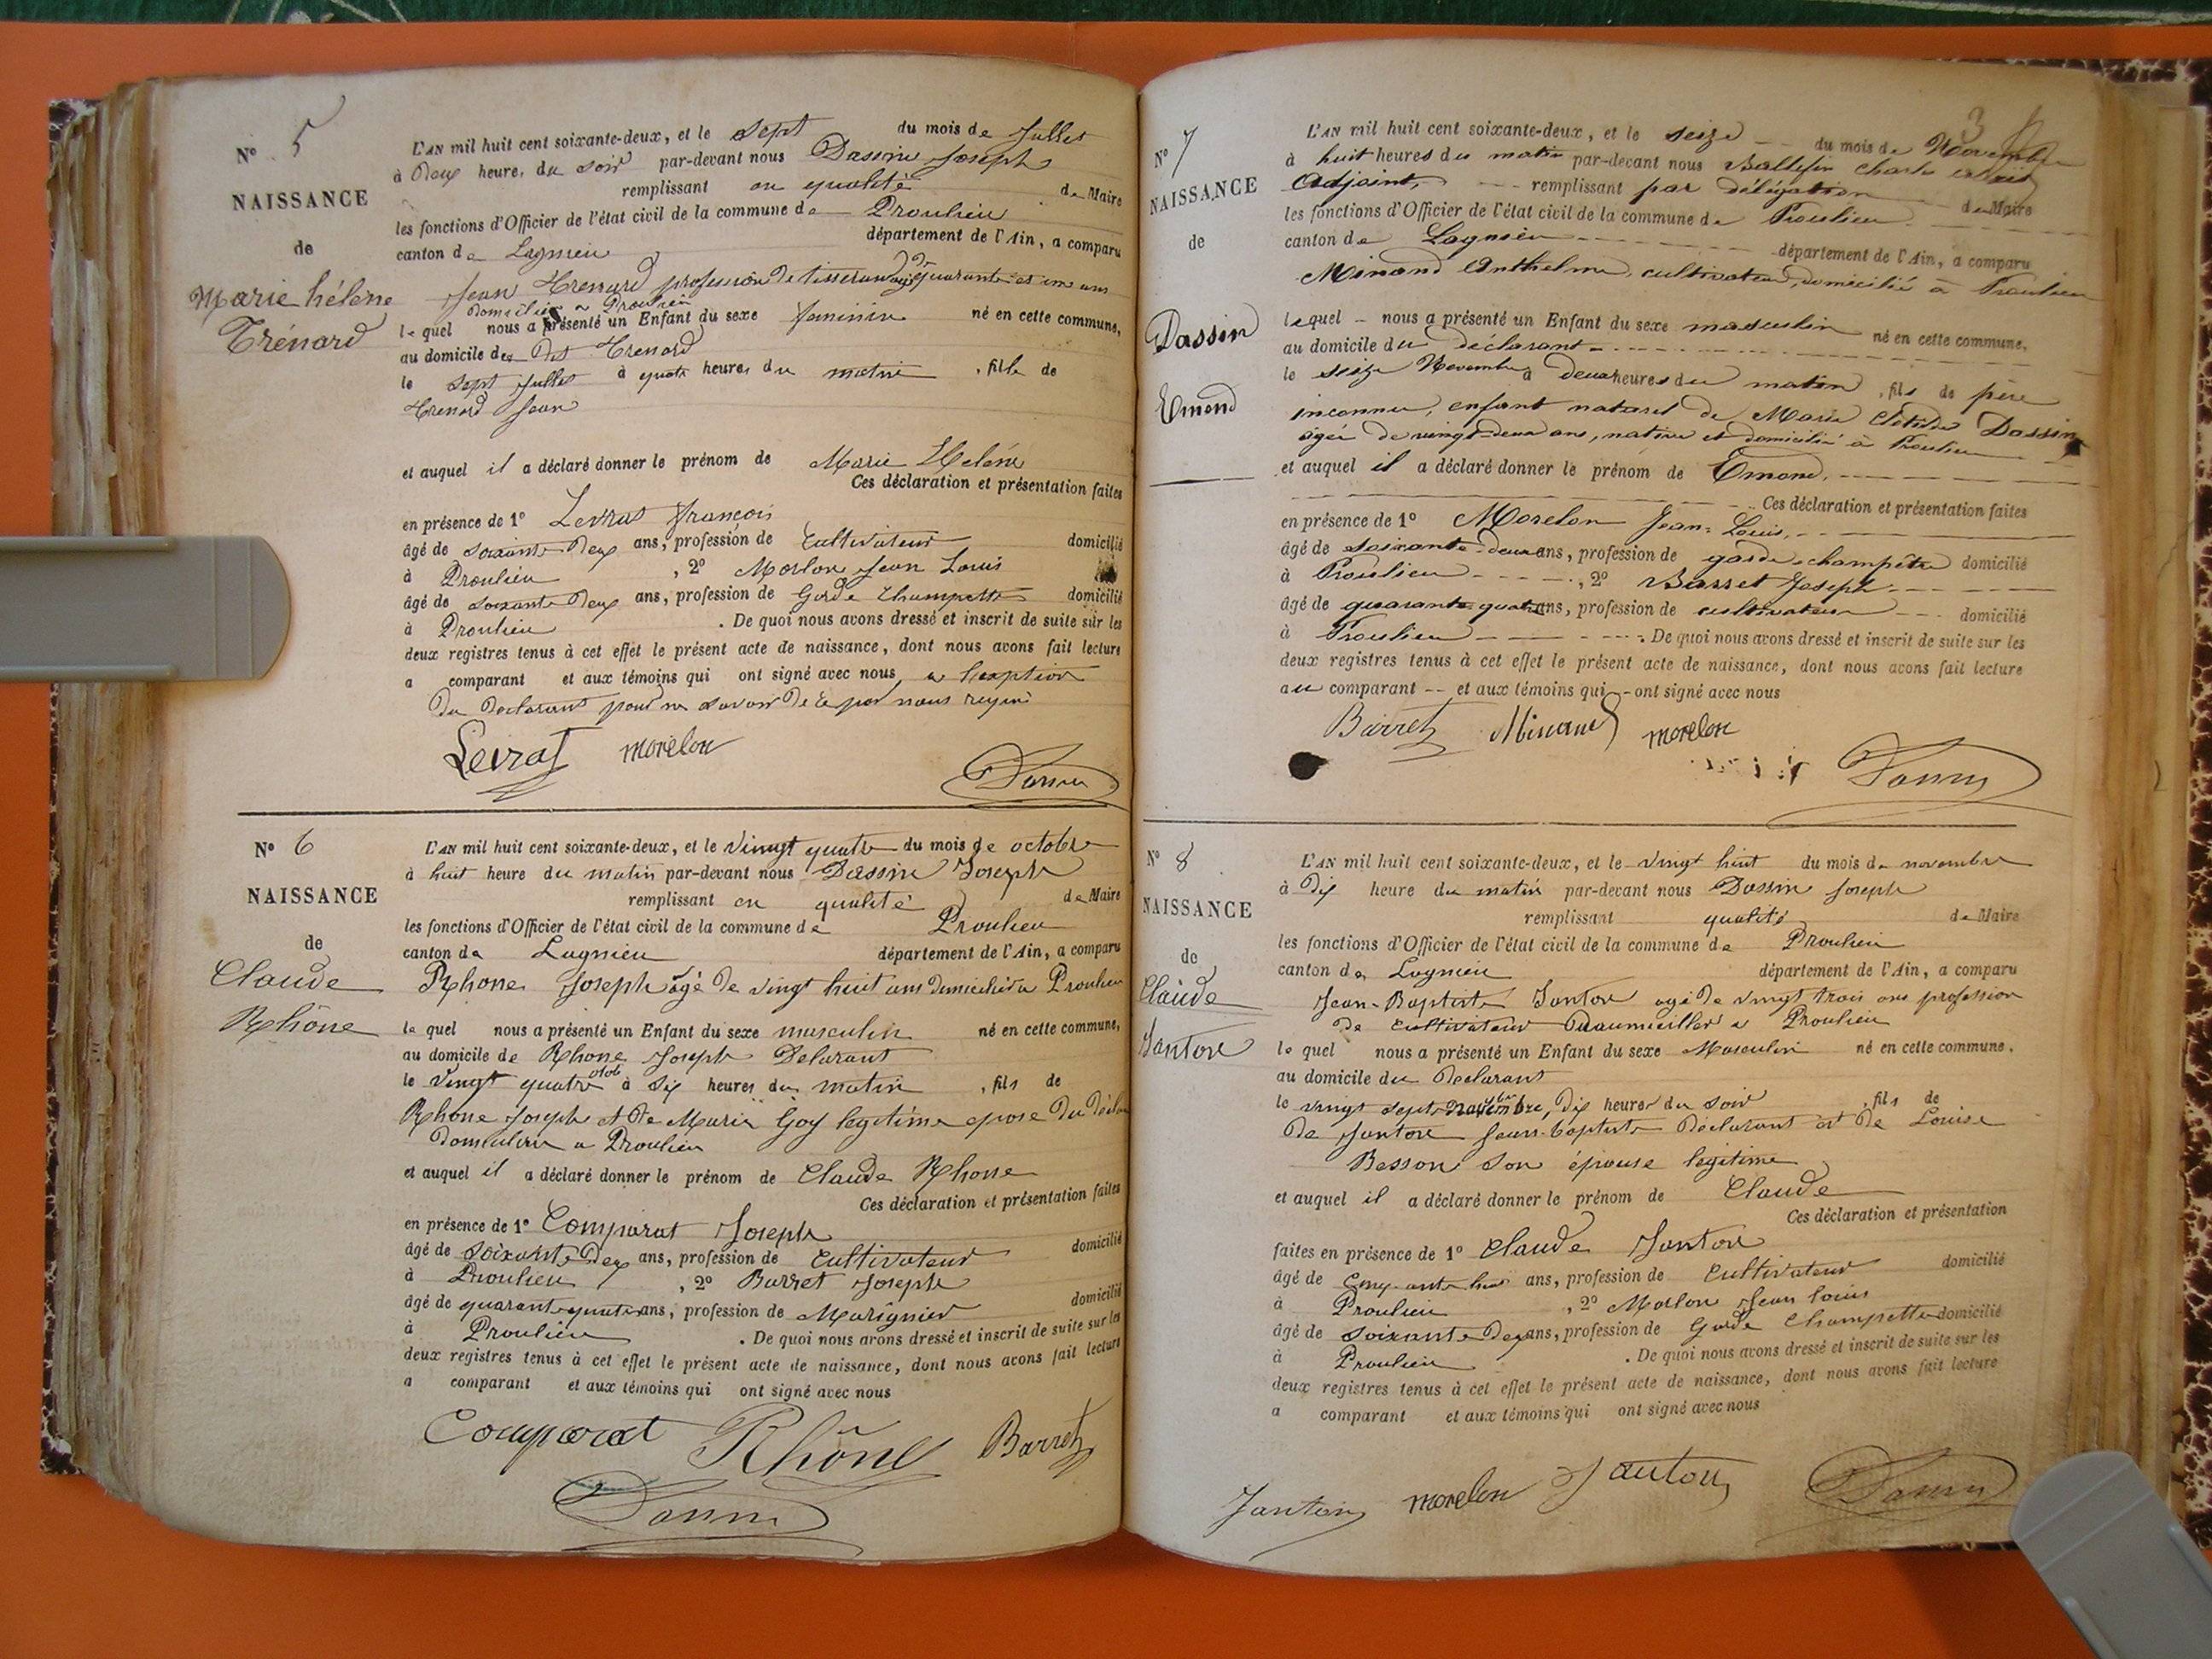 N° 5
NAISSANCE
de
Marie hélène
Trénard
L'AN mil huit cent soixante-deux, et le sept du mois de Jullet
à deux heure, du soir par-devant nous Dassin Joseph
remplissant en qualité de Maire
les fonctions d'Officier de l'état civil de la commune de Proulieu
canton de Lagnieu département de l'Ain, a comparu
Jean Trenard profession de tisserand agé de quarante et un ans
domicilié a Proulieu
lequel nous a présenté un Enfant du sexe feminin né en cette commune,
au domicile de dit Trenard
le sept Jullet à quatre heures du matin , fille de
Trenard Jean
et auquel il a déclaré donner le prénom de Marie Heléne
Ces déclaration et présentation faites
en présence de 1° Levrat françois
âgé de soixante deux ans, profession de Cultivateur domicilié
à Proulieu , 2° Morlon Jean Louis
âgé de soixante deux ans, profession de Garde Champette domicilié
à Proulieu . De quoi nous avons dressé et inscrit de suite sur les
deux registres tenus à cet effet le présent acte de naissance, dont nous avons fait lecture
a comparant et aux témoins qui ont signé avec nous a lexeption
du declarant pour ne savoir de ce par nous requi
Levrat morelon
Dassin
N° 6
NAISSANCE
de
Claude
Rhône
L'AN mil huit cent soixante-deux, et le vingt quatre du mois de octobre
à huit heure du matin par-devant nous Dassin Joseph
remplissant en qualité de Maire
les fonctions d'Officier de l'état civil de la commune de Proulieu
canton de Lagnieu département de l'Ain, a comparu
Rhone Joseph agé de vingt huit ans domicilié a Proulieu
lequel nous a présenté un Enfant du sexe masculin né en cette commune,
au domicile de Rhone Joseph Delarant
le vingt quatre octob à six heures du matin , fils de
Rhone Joseph et de Marie Goy legitime epose du décla
domicilié a Proulieu
et auquel il a déclaré donner le prénom de Claude Rhone
Ces déclaration et présentation faites
en présence de 1° Comparat Joseph
âgé de soixante deux ans, profession de Cultivateur domicilié
à Proulieu , 2° Barret Joseph
âgé de quarante quatre ans, profession de Marignier domicilié
à Proulieu . De quoi nous avons dressé et inscrit de suite sur les
deux registres tenus à cet effet le présent acte de naissance, dont nous avons fait lecture
a comparant et aux témoins qui ont signé avec nous
Comparat Rhône Barret
Dassin
3
N° 7
NAISSANCE
de
Dassin
Emond
L'AN mil huit cent soixante-deux, et le seize du mois de Novembre
à huit heures du matin par-devant nous Ballefin Charles
Adjoint, remplissant par délégation de Maire
les fonctions d'Officier de l'état civil de la commune de Proulieu
canton de Lagnieu département de l'Ain, a comparu
Minand Anthelme, cultivateur, domicilié à Proulieu
lequel nous a présenté un Enfant du sexe masculin né en cette commune,
au domicile du déclarant
le seize Novembre à deux heures du matin , fils de père
inconnu, enfant naturel de Marie Clotilde Dassin
âgée de vingt-deux ans, native et domicilié à Proulieu
et auquel il a déclaré donner le prénom de Emond.
Ces déclaration et présentation faites
en présence de 1° Morelon Jean-Louis,
âgé de soixante-deux ans, profession de garde-champêtre domicilié
à Proulieu , 2° Barret Joseph
âgé de quarante-quatre ans, profession de cultivateur domicilié
à Proulieu . De quoi nous avons dressé et inscrit de suite sur les
deux registres tenus à cet effet le présent acte de naissance, dont nous avons fait lecture
au comparant et aux témoins qui ont signé avec nous
Barret Minand morelon
Dassin
N° 8
NAISSANCE
de
Claude
Janton
L'AN mil huit cent soixante-deux, et le vingt huit du mois de novembre
à dix heure du matin par-devant nous Dassin Joseph
remplissant qualité de Maire
les fonctions d'Officier de l'état civil de la commune de Proulieu
canton de Lagnieu département de l'Ain, a comparu
Jean-Baptiste Janton agé de vingt trois ans profession
de Cultivateur a Proulieu
lequel nous a présenté un Enfant du sexe Masculin né en cette commune,
au domicile du Declarant
le vingt sept novembre, dix heures du soir , fils de
de Janton Jean-baptiste Déclarant et de Louise
Besson son épouse légitime
et auquel il a déclaré donner le prénom de Claude
Ces déclaration et présentation
faites en présence de 1° Claude Janton
âgé de ans, profession de Cultivateur domicilié
à Proulieu , 2° Morlon Jean louis
âgé de soixante deux ans, profession de Garde Champette domicilié
à Proulieu . De quoi nous avons dressé et inscrit de suite sur les
deux registres tenus à cet effet le présent acte de naissance, dont nous avons fait lecture
a comparant et aux témoins qui ont signé avec nous
Janton morelon Janton Dassin